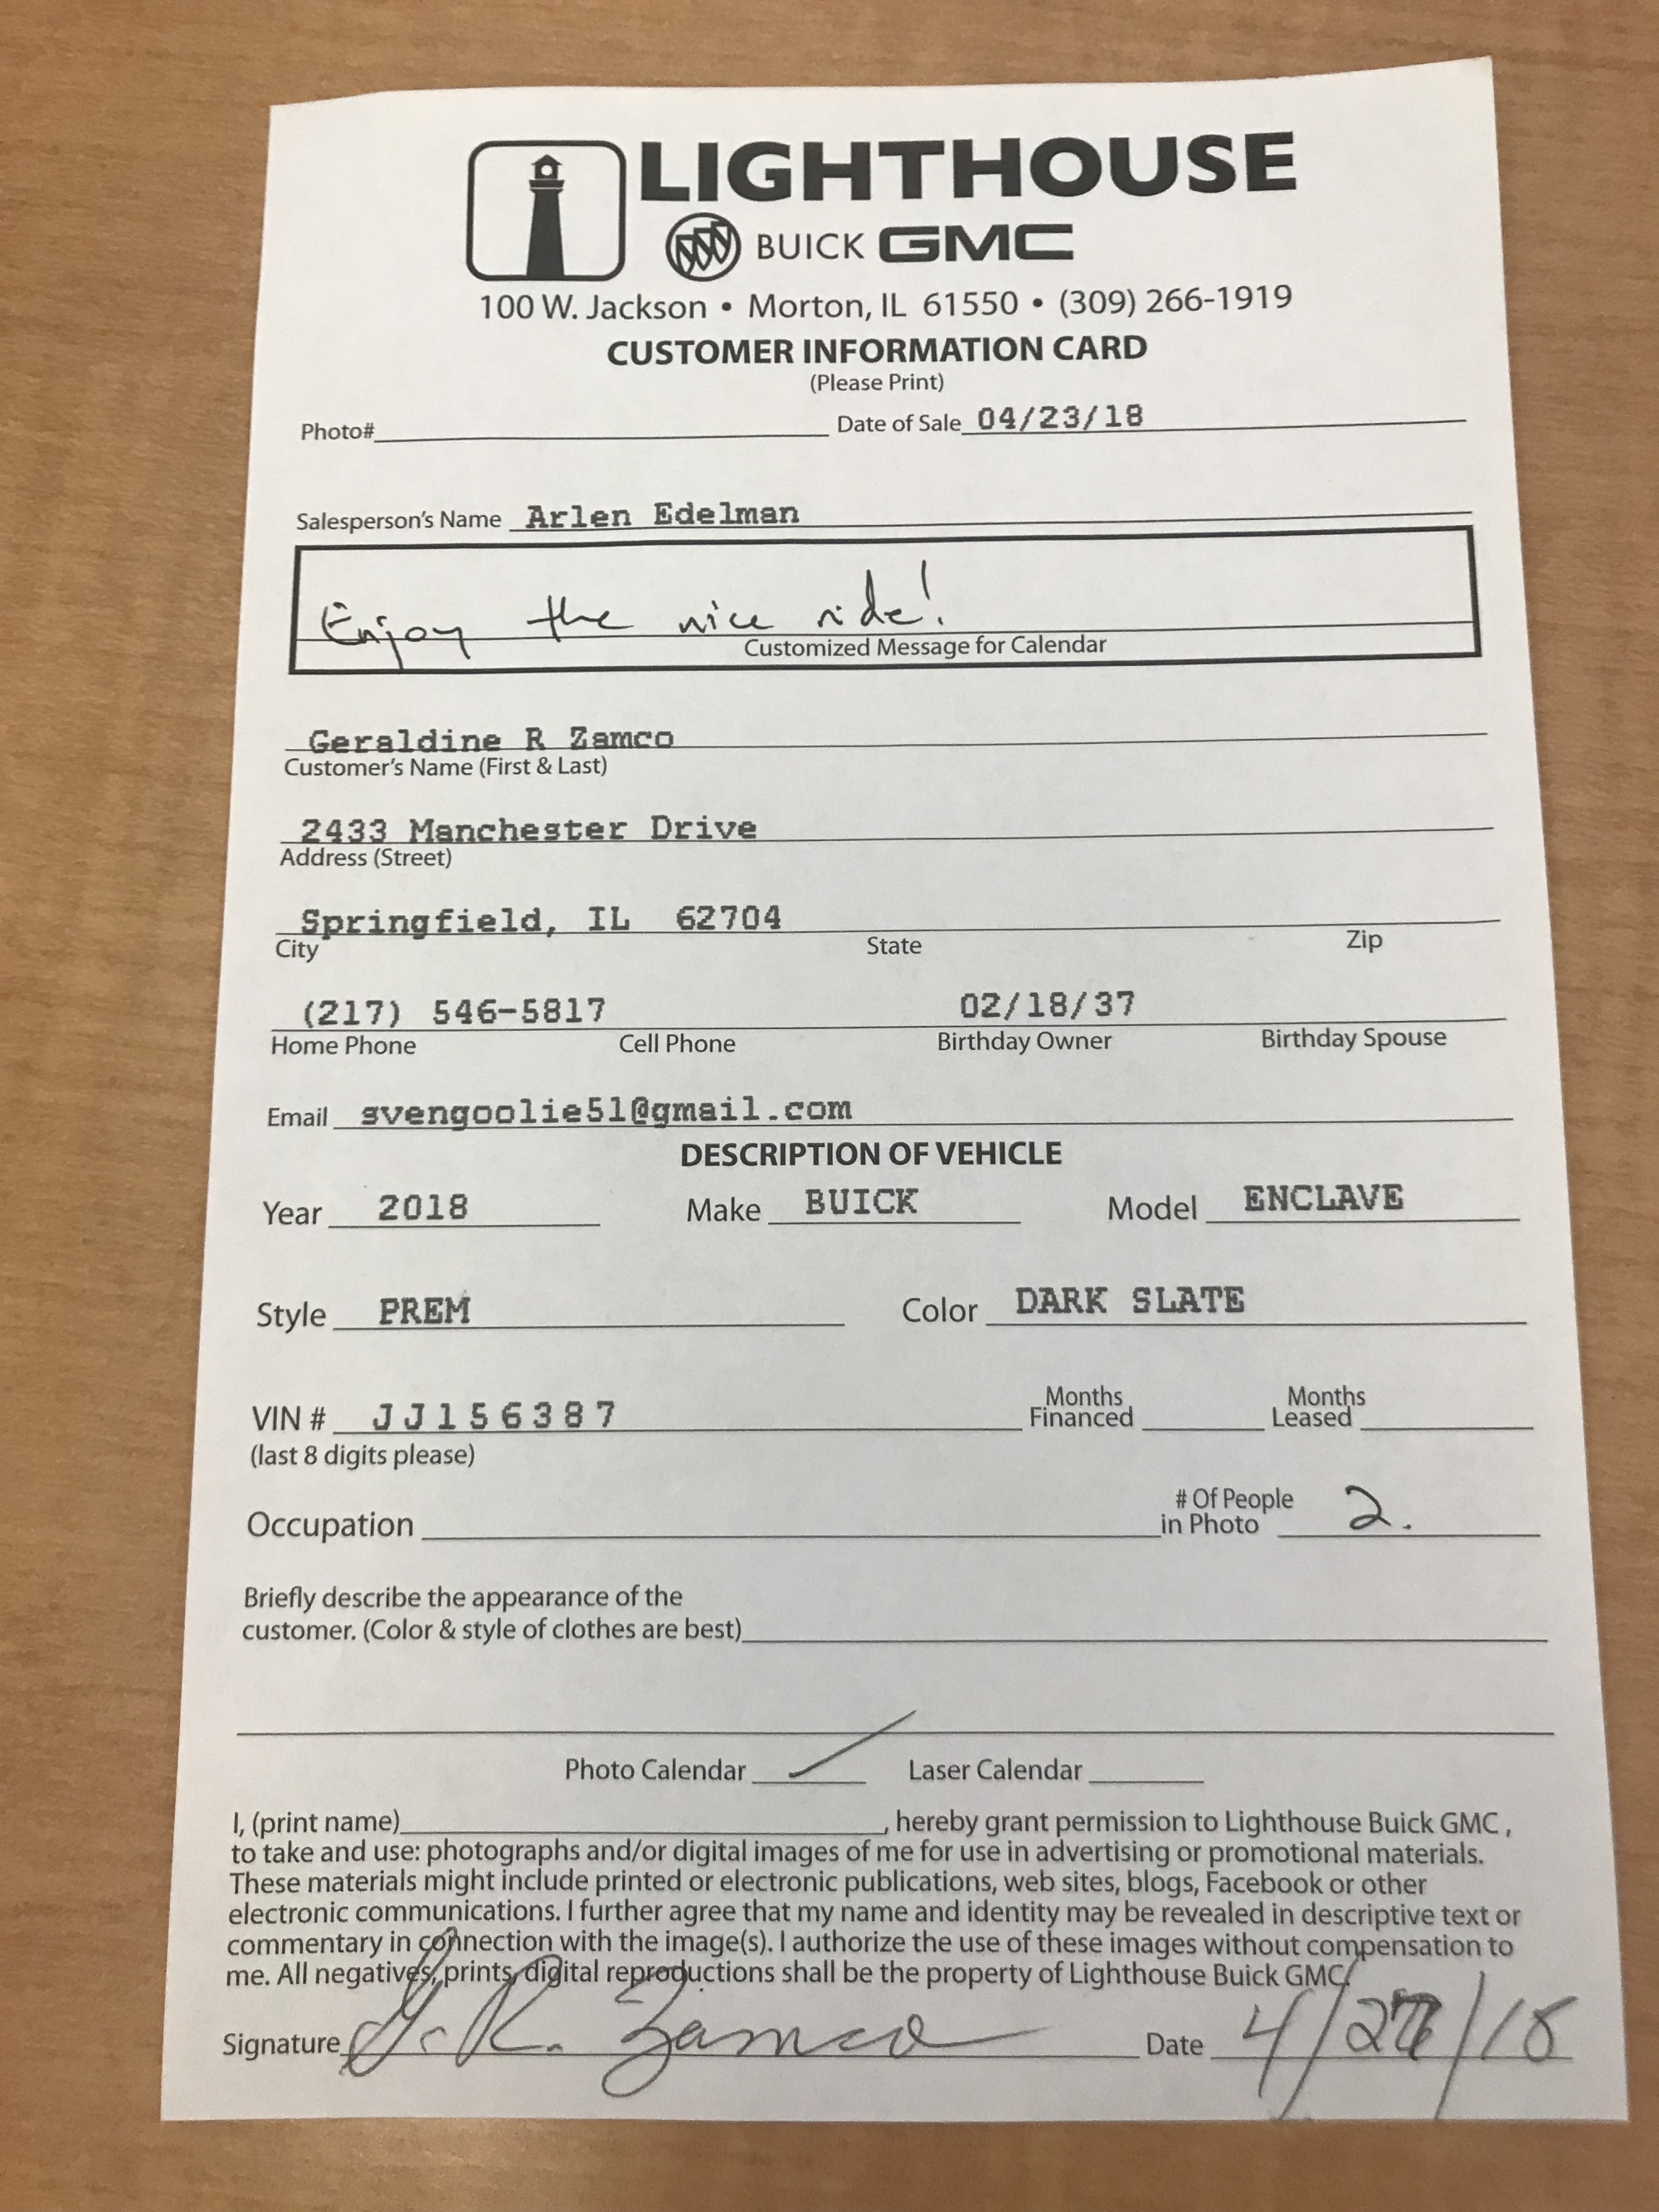 LIGHTHOUSE
BUICK GMC
100 W. Jackson • Morton, IL 61550 • (309) 266-1919
CUSTOMER INFORMATION CARD
(Please Print)
Photo# Date of Sale 04/23/18
Salesperson's Name Arlen Edelman
Enjoy the nice ride!
Customized Message for Calendar
Geraldine R Zamco
Customer's Name (First & Last)
2433 Manchester Drive
Address (Street)
Springfield, IL 62704
City State Zip
(217) 546-5817 02/18/37
Home Phone Cell Phone Birthday Owner Birthday Spouse
Email svengoolie51@gmail.com
DESCRIPTION OF VEHICLE
Year 2018 Make BUICK Model ENCLAVE
Style PREM Color DARK SLATE
VIN # JJ156387 Months Financed Months Leased
(last 8 digits please)
Occupation # Of People in Photo 2.
Briefly describe the appearance of the
customer. (Color & style of clothes are best)
Photo Calendar Laser Calendar
I, (print name) , hereby grant permission to Lighthouse Buick GMC ,
to take and use: photographs and/or digital images of me for use in advertising or promotional materials.
These materials might include printed or electronic publications, web sites, blogs, Facebook or other
electronic communications. I further agree that my name and identity may be revealed in descriptive text or
commentary in connection with the image(s). I authorize the use of these images without compensation to
me. All negatives, prints, digital reproductions shall be the property of Lighthouse Buick GMC.
Signature G. R. Zamco Date